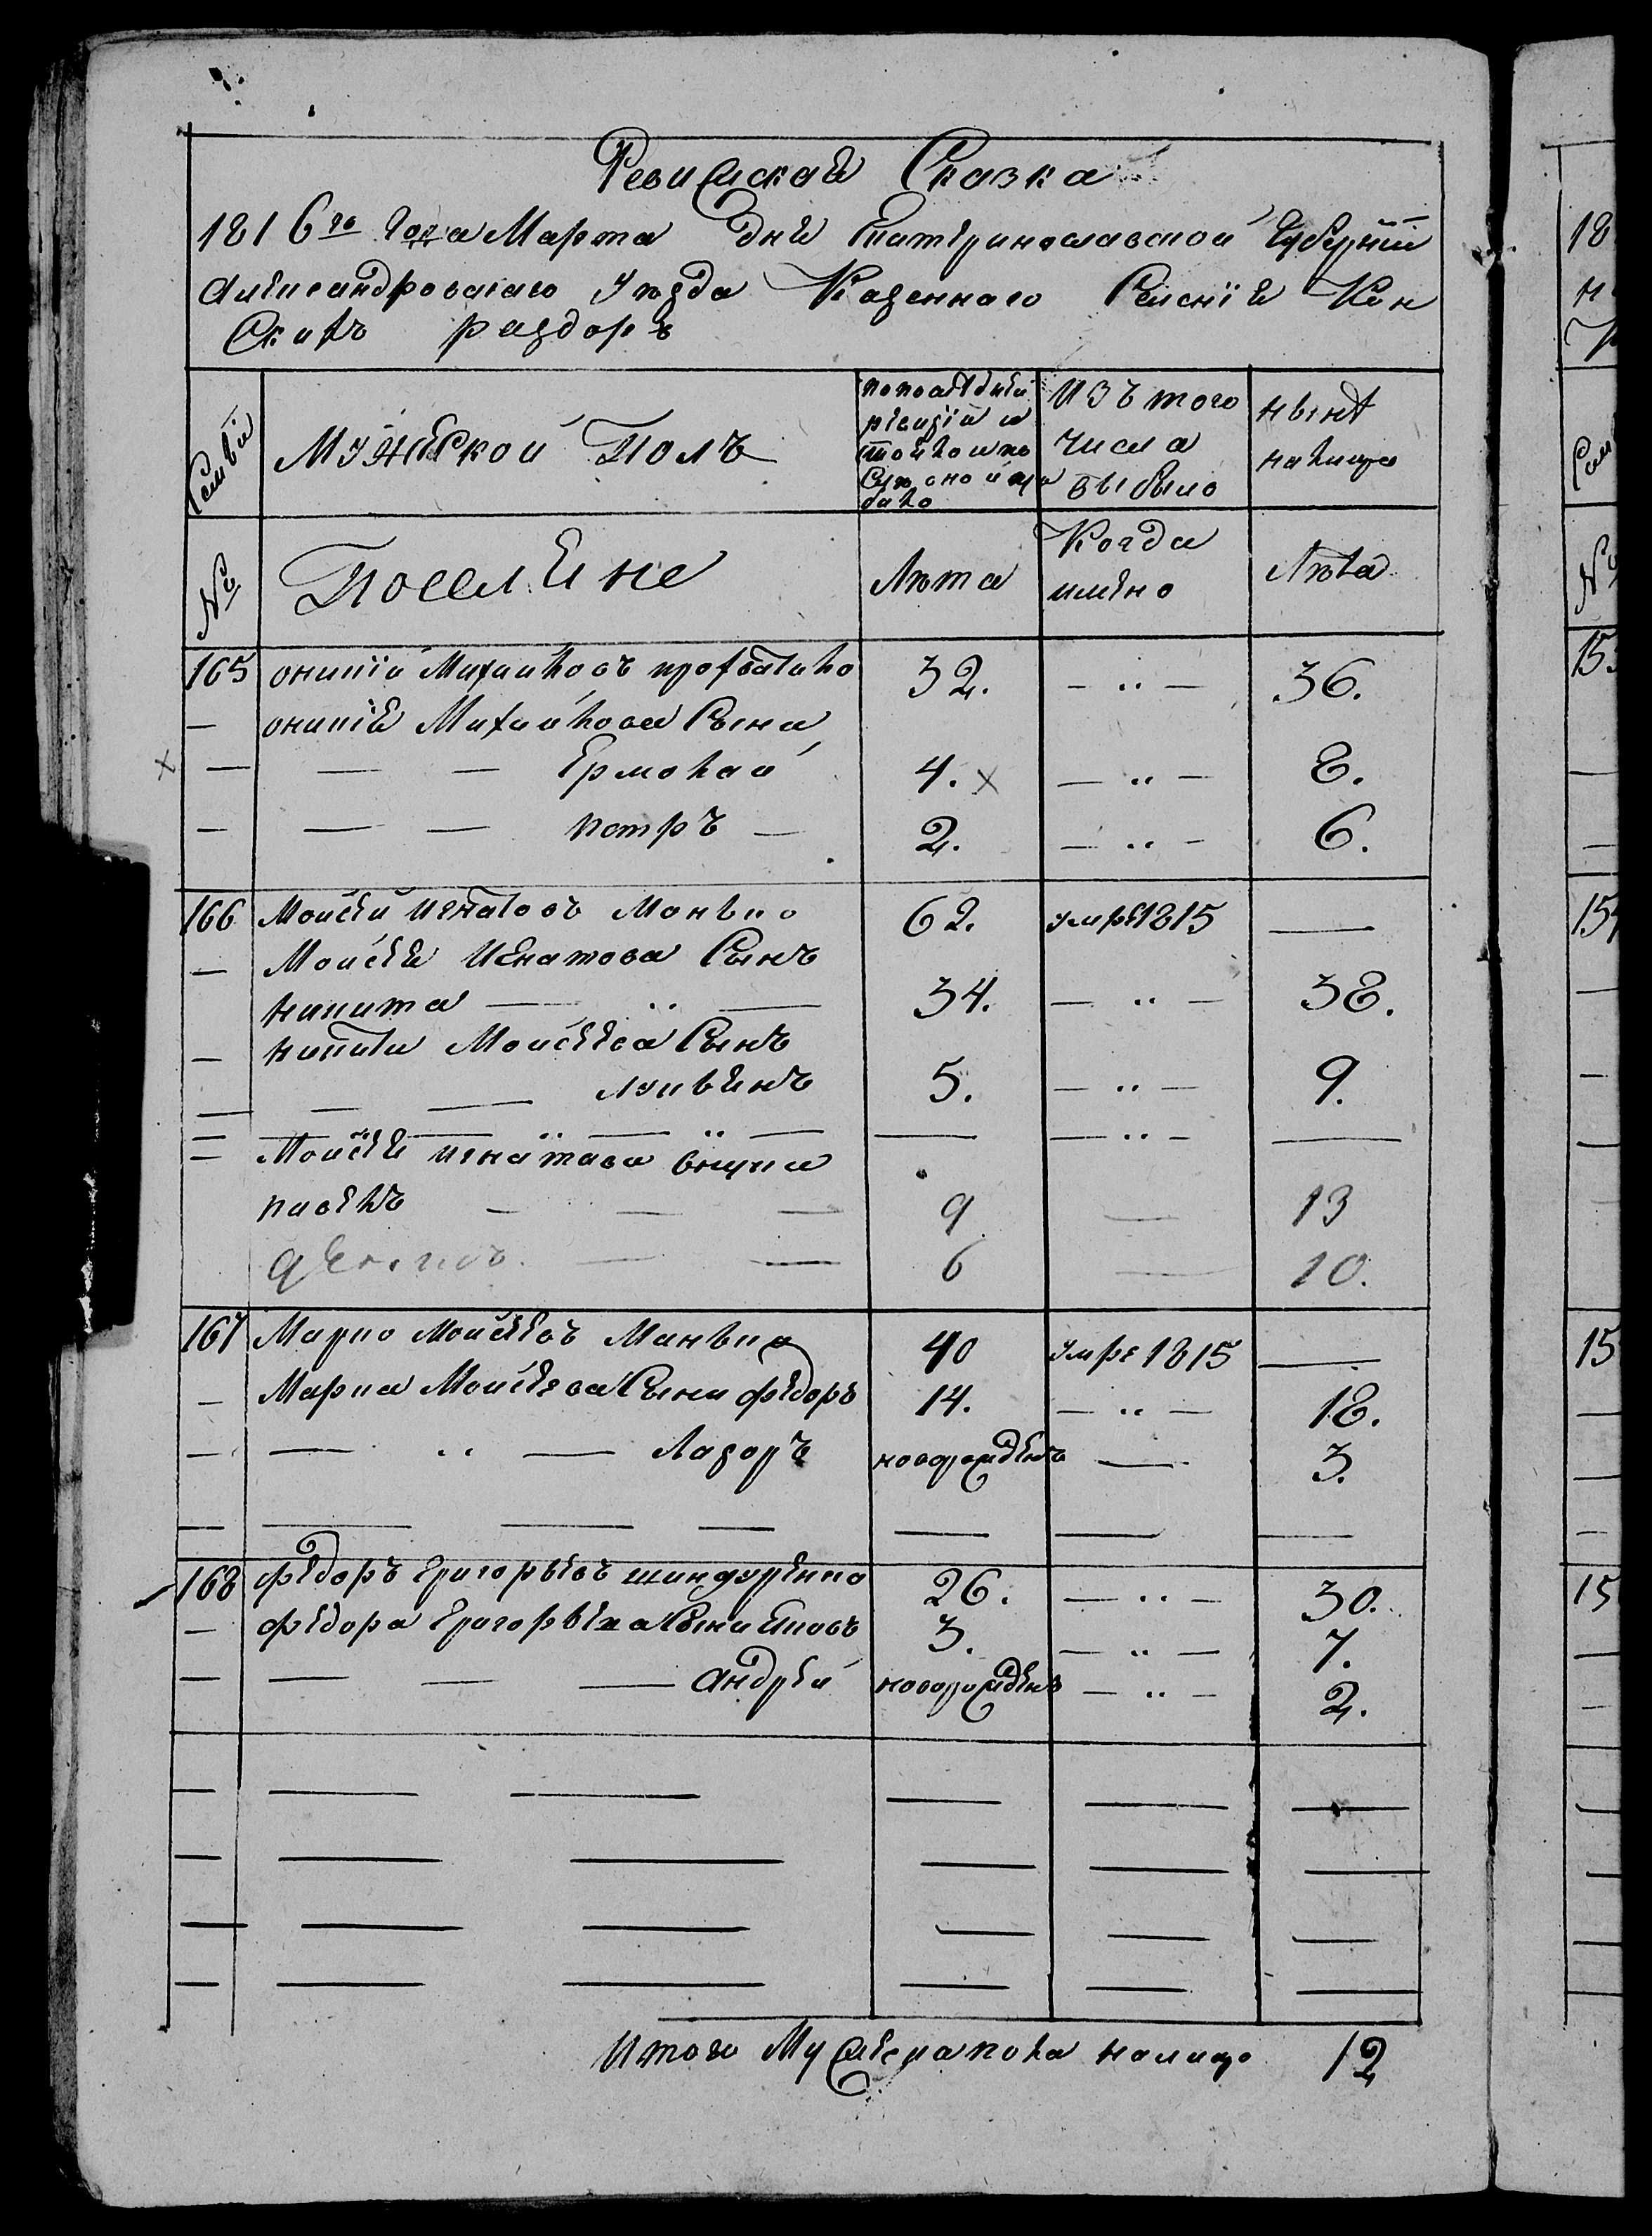 Ревижская Сказка
1816го Года Марта дня Екатеринославской Губернїи
Александровскаго Уезда Казеннаго Селенїя Кон
Скихъ раздоръ
Семьи
Мужеской Полъ
попоследней ревизїи
Изъ того числа выбыло
ныне налицо
№
Поселяне
Лета
Когда имено
Лета
165 онипїй Михайловъ 32. — " — 36.
— онипїя Михайлова Сыни
— — — Ермолай 4. х — " — 8.
— — — петръ — 2. — " — 6.
166 Мойсей игнатовъ Манько 62. умре 1815 —
— Мойсея Игнатова Сынъ
никита — " — 34. — " — 38.
— никиты Мойсеева Сынъ
— — — лукьянъ 5. — " — 9.
— Мойсея игнатова внуки
павелъ — — — 9 — 13
— — 6 — 10.
167 Марко Мойсеевъ Манько 40 умре 1815 —
— Марка Мойсеева Сыни федоръ 14. — " — 18.
— — " — Лазоръ новорожденъ — 3.
168 федоръ григорьевъ шиндуренко 26. — " — 30.
— федора григорьева Сыни 3. — " — 7.
— — — — андрей новорожденъ — " — 2.
Итого Мужеска пола налицо 12
18
15
15
15